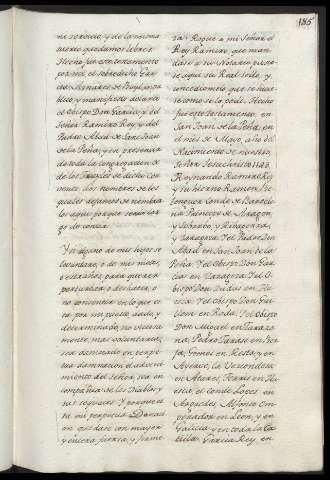 185
mi servicio, y de la misma
suerte quedamos libres.
Hecho fue este testamento
por mi el sobredicho Gar
blico, y manifiesto delante
el Obispo Don Garcia, y del
Señor Ramiro Rey, y del
Padre Abad de San Juan
de la Peña, y en presencia
de toda la congregacion
de los frayles de dicho con
vento, dos nombres de los
quales dejamos de nombra
los aqui porque seria lar
go de contar.
Y si alguno de mis hijos se
levantare, o de mis nietos,
o estraños, para querer
perturbar, o deshacer, o
no consentir en lo que es
ta por mi puesto aqui, y
determinado, no viciosa
mente, mas voluntario,
sea condenado en perpe
tua damnacion el adveni
miento del Señor, sea en
compañia de los Diablos y
sus sequaces. Y porque es
ta mi perpetua Donaci
on quedase con mayor
y entera fuerza, y firme
za: Rogue a mi Señor el
Rey Ramiro, que man
dase a su Notario pusie
se aqui su Real Sello, y
concediendo que se hicie
se como se lo pedi. Hecho
fue este Testamento en
San Juan de la Peña, en
el mes de Mayo, año del
Nacimiento de nuestro
Señor Jesuchristo
Reynando Ramiro Rey
y su hierno Ramon Be
lenguer Conde de Barcelo
na Principe de Aragon,
y Sobrarbe, y Ribagorza,
y Zaragoza. Y el Padre Don
Abad en San Juan de la
Peña. Y el Obispo Don Gar
cia en Zaragoza. Y el O
bispo Don Dodus en Hu
esca. Y el Obispo Don Gui
llem en Roda. Y el Obispo
Don Miguel en Tarazo
na. Pedro Tarese en Bor
ja, Gomez en Resta, y en
Ayerve, la Vizcondesa
en Atares, Ferriz en Hu
esca, el Conde Lopez en
Alfonso Em
perador en Leon, y en
Galicia y en toda la Cas
tilla. Garcia Rey en